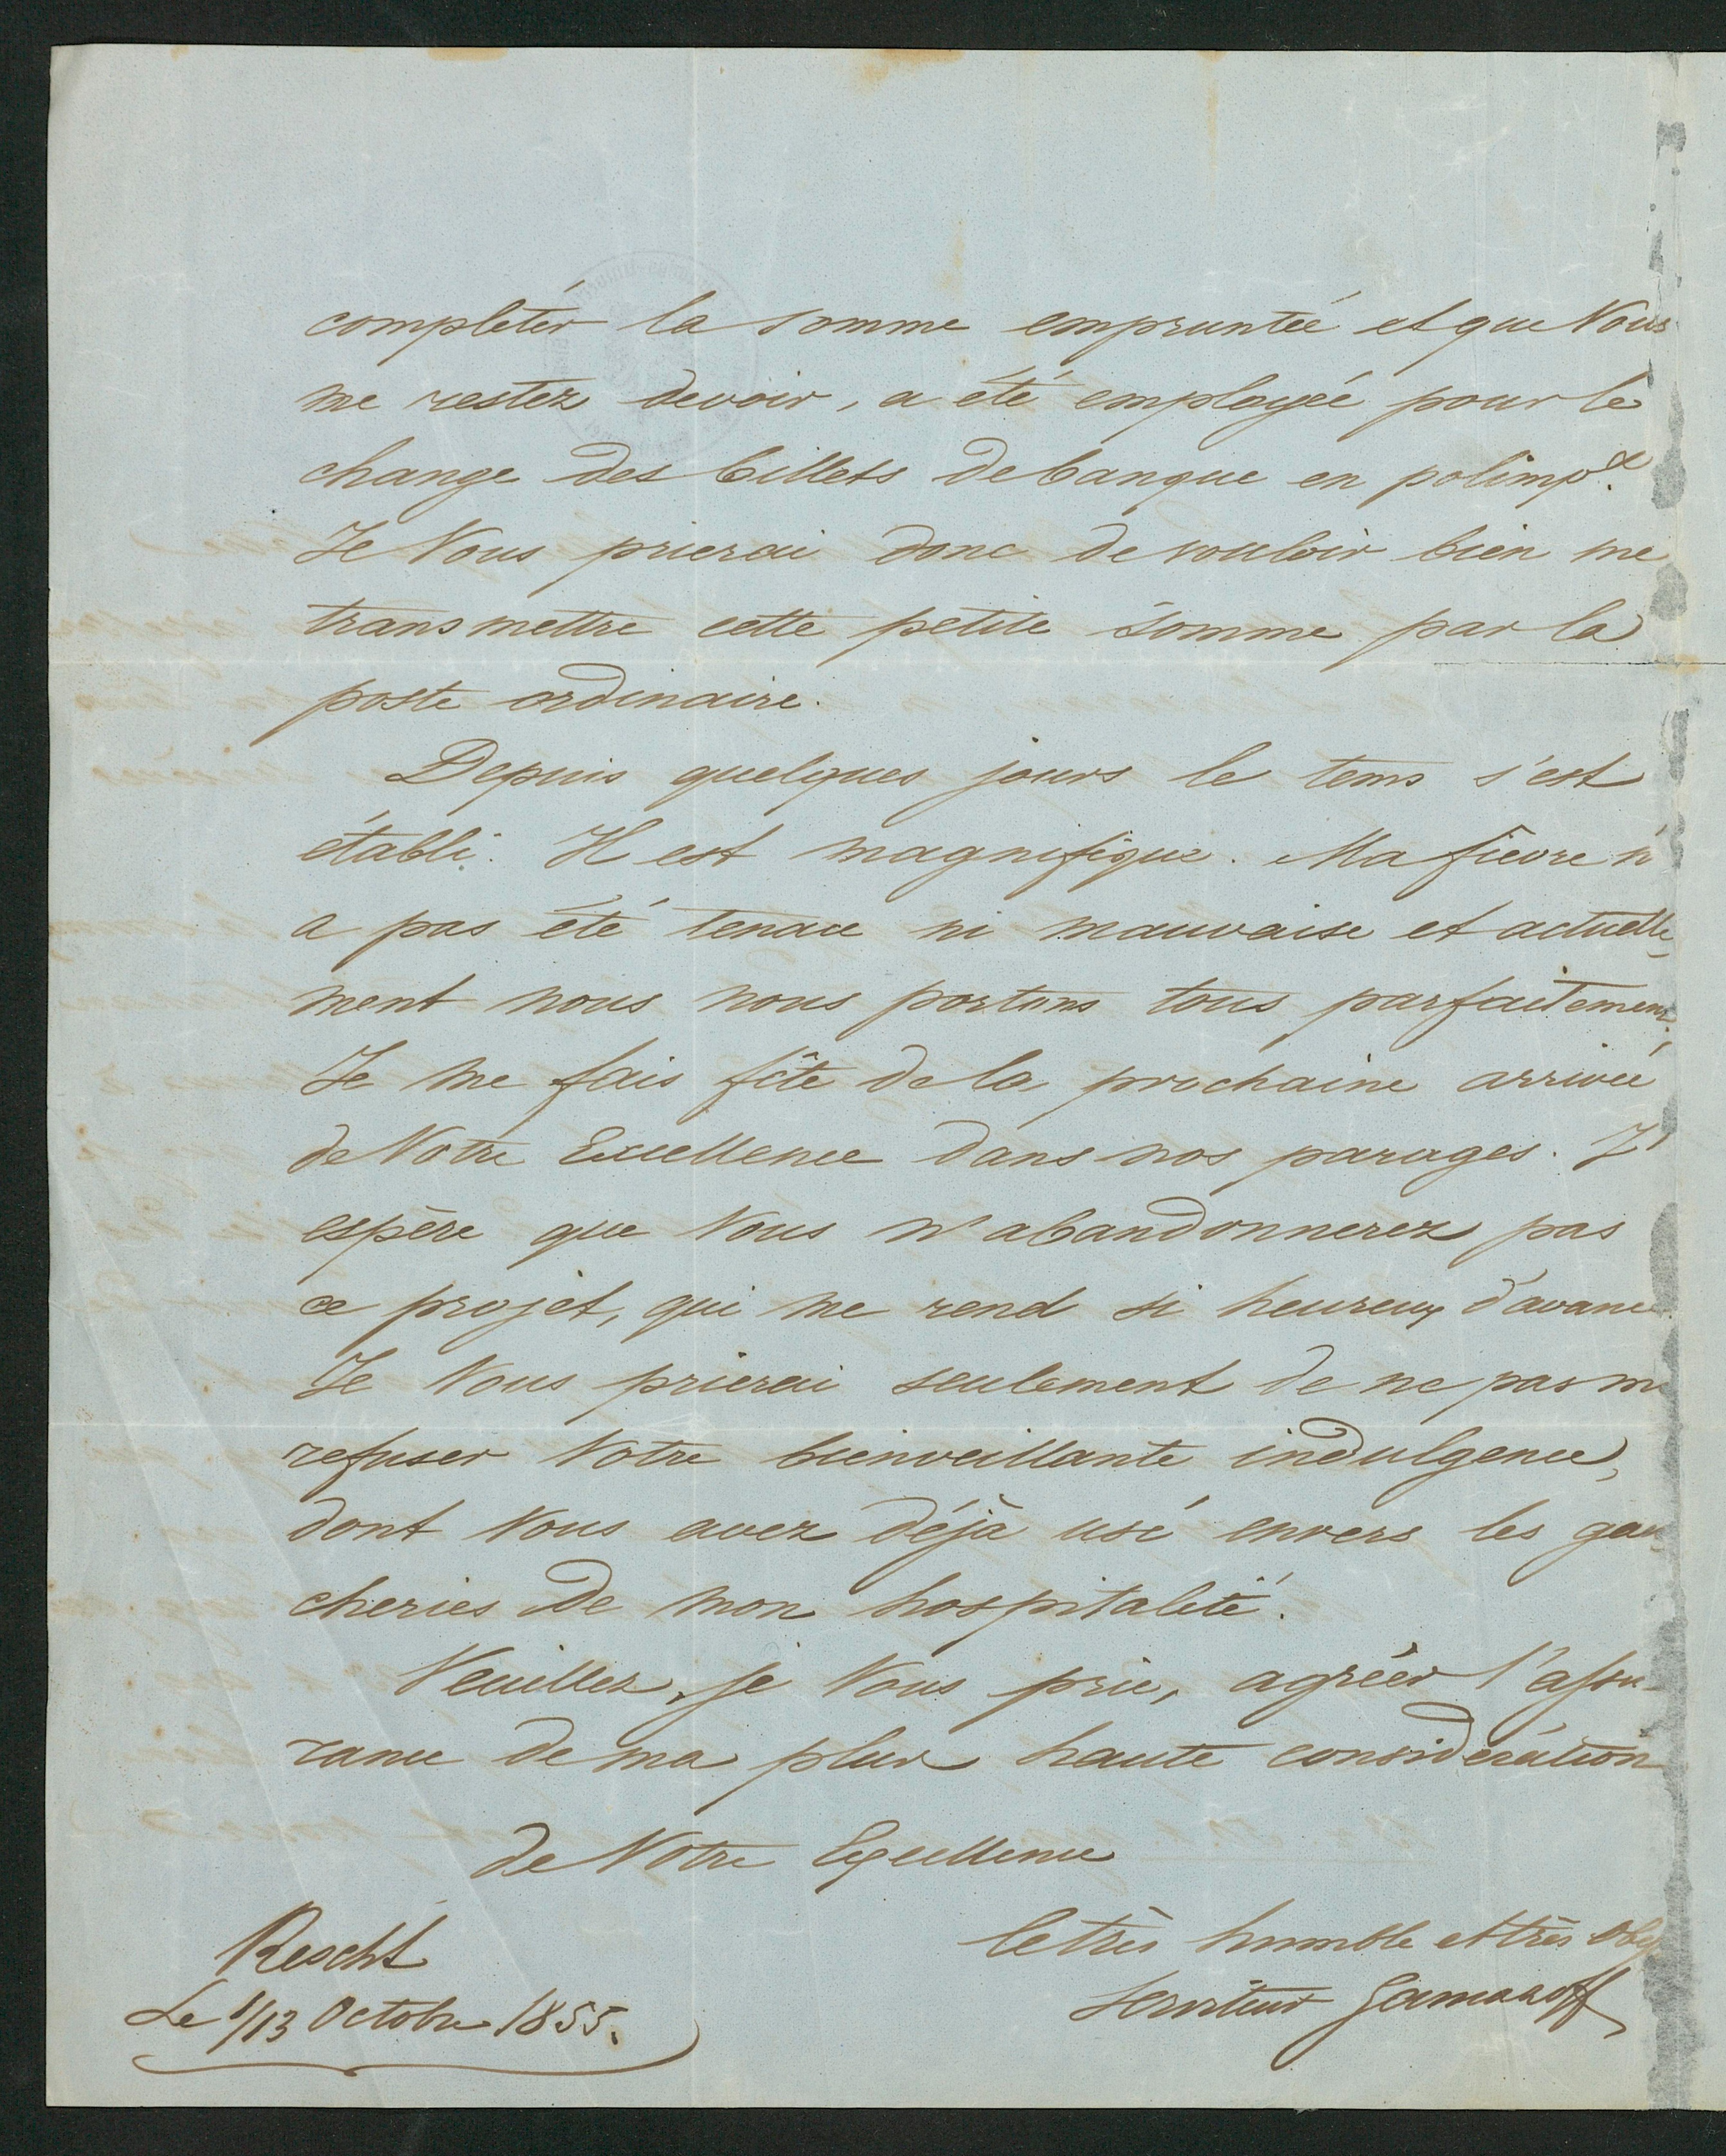 compléter la somme empruntée et que Vous
me restez devoir, a été employée pour le
change des billets de banque en polimp.
Je Vous prierai donc de vouloir bien me
transmettre cette petite somme par la
poste ordinaire.
Depuis quelques jours le tems s'est
établi. Il est magnifique. Ma fièvre n'
a pas été tenace ni mauvaise et actuelle-
ment nous nous portons tous parfaitement.
Je me fais fête de la prochaine arrivée
de Votre Excellence dans nos parages. J'
espère que Vous n'abandonnerez pas
ce projet, qui me rend si heureux d'avance.
Je Vous prierai seulement de ne pas me
refuser Votre bienveillante indulgence,
dont Vous avez déjà usé envers les gau
cheries de mon hospitalité.
Veuillez, je Vous prie, agréer l'assu-
rance de ma plus haute considération
de Votre Excellence
le très humble et très obé
serviteur Gamazoff
Rescht
Le 1/13 Octobre 1855.